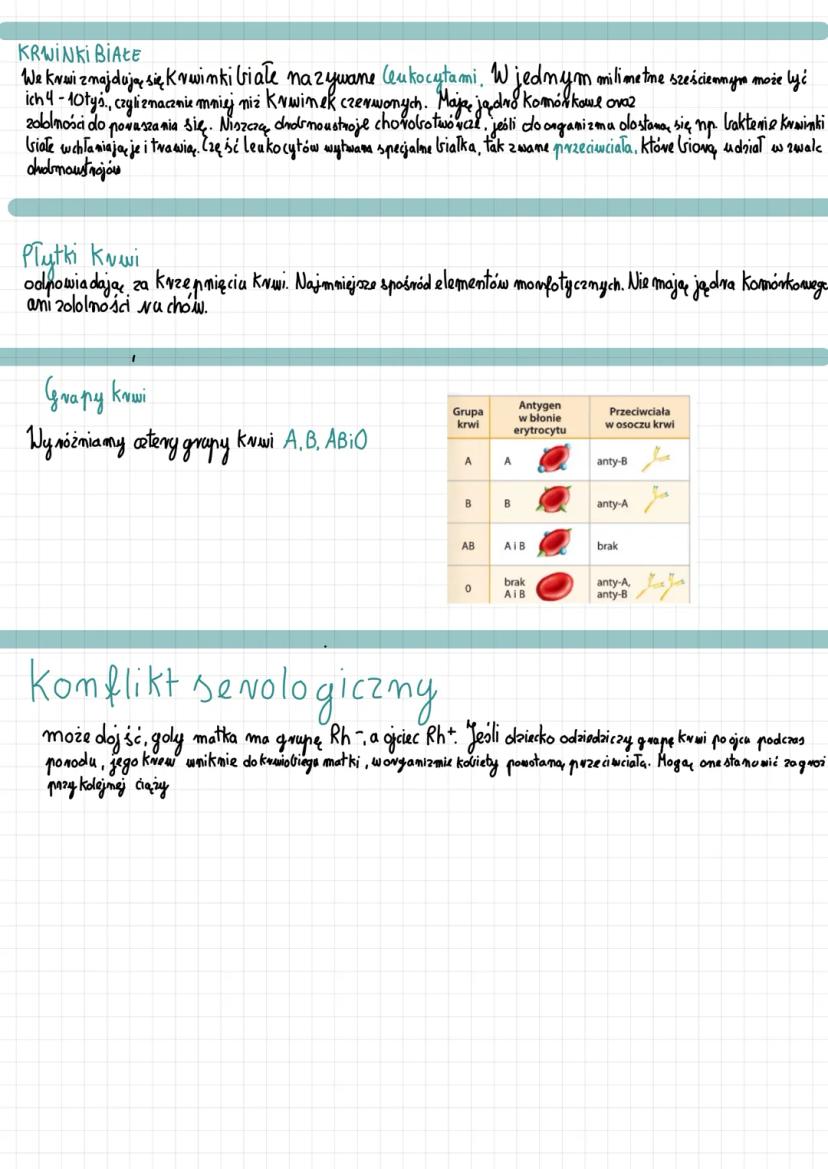 KRWiNKi BiAŁE
We krwi znajdują się krwinki białe nazywane leukocytami. W jednym milimetrze sześciennym może być
ich 4-10tyś., czyli znacznie mniej niż krwinek czerwonych. Mają jądro komórkowe oraz
zdolności do poruszania się. Niszczą drobnoustroje chorobotwórcze, jeśli do organizmu dostaną się np. bakterie krwinki
białe wchłaniają je i trawią. Część leukocytów wytwarza specjalne białka, tak zwane przeciwciała, które biorą udział w zwalc
drobnoustrojów
Płytki krwi
odpowiadają za krzepnięciu krwi. Najmniejsze spośród elementów morfotycznych. Nie mają jądra komórkowego
ani zdolności ruchów.
Grupy krwi
Wyróżniamy cztery grupy krwi A, B, AB i O
Grupa krwi Antygen w błonie erytrocytu Przeciwciała w osoczu krwi
A A anty-B
B B anty-A
AB A i B brak
0 brak A i B anty-A, anty-B
Konflikt serologiczny
może dojść, gdy matka ma grupę Rh⁻, a ojciec Rh⁺. Jeśli dziecko odziedziczy grupę krwi po ojcu podczas
porodu, jego krew wniknie do krwiobiegu matki, w organizmie kobiety powstaną przeciwciała. Mogą one stanowić zagroż
przy kolejnej ciąży